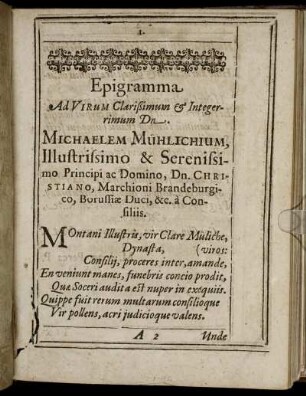 1.
Epigramma
Ad VIRUM Clarißimum & Integer-
rimum Dn.
MICHAELEM MÜHLICHIUM,
Illustrissimo & Serenissi-
mo Principi ac Domino, Dn. CHRI-
STIANO, Marchioni Brandeburgi-
co, Borussiæ Duci, &c. à Con-
siliis.
Montani Illustris, vir Clare Müliche,
Dynastæ,
(viros:
Consilij, proceres inter, amande,
En veniunt manes, funebris concio prodit,
Quæ Soceri audita est nuper in exequiis.
Quippe fuit rerum multarum consilioque
Vir pollens, acri judicioque valens.
A 2 Unde